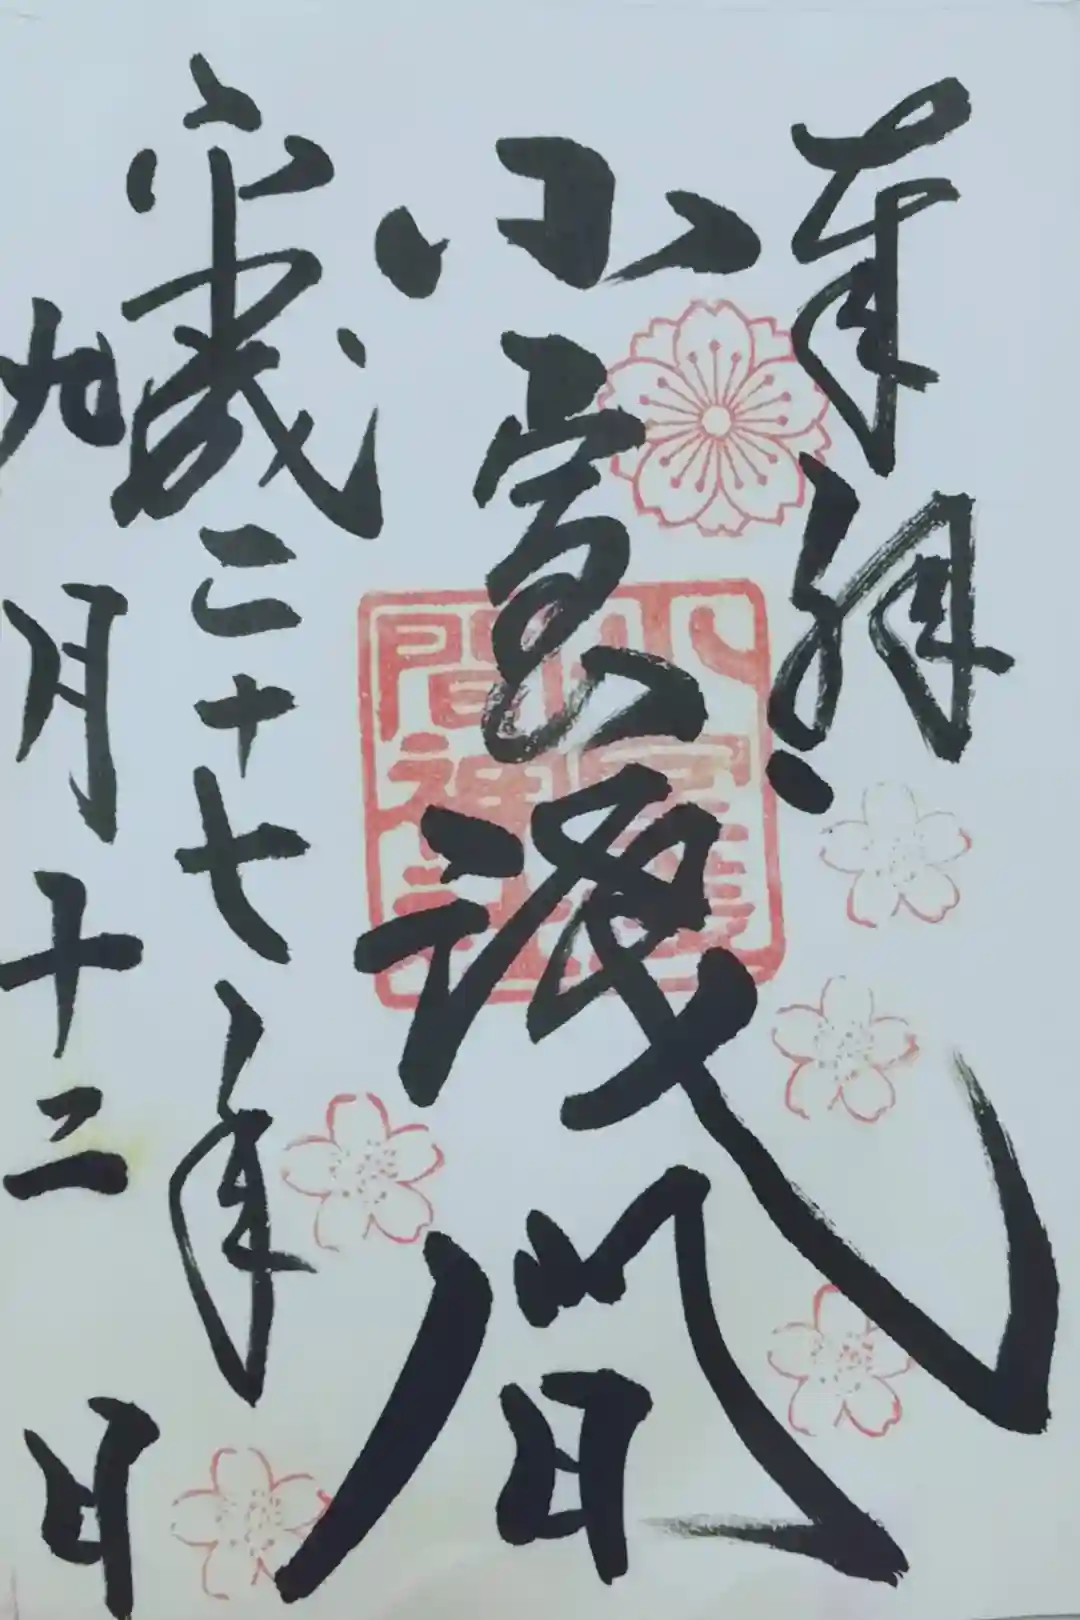 奉拝
小室浅間
平成二十七年
九月十二日
小室浅間神社